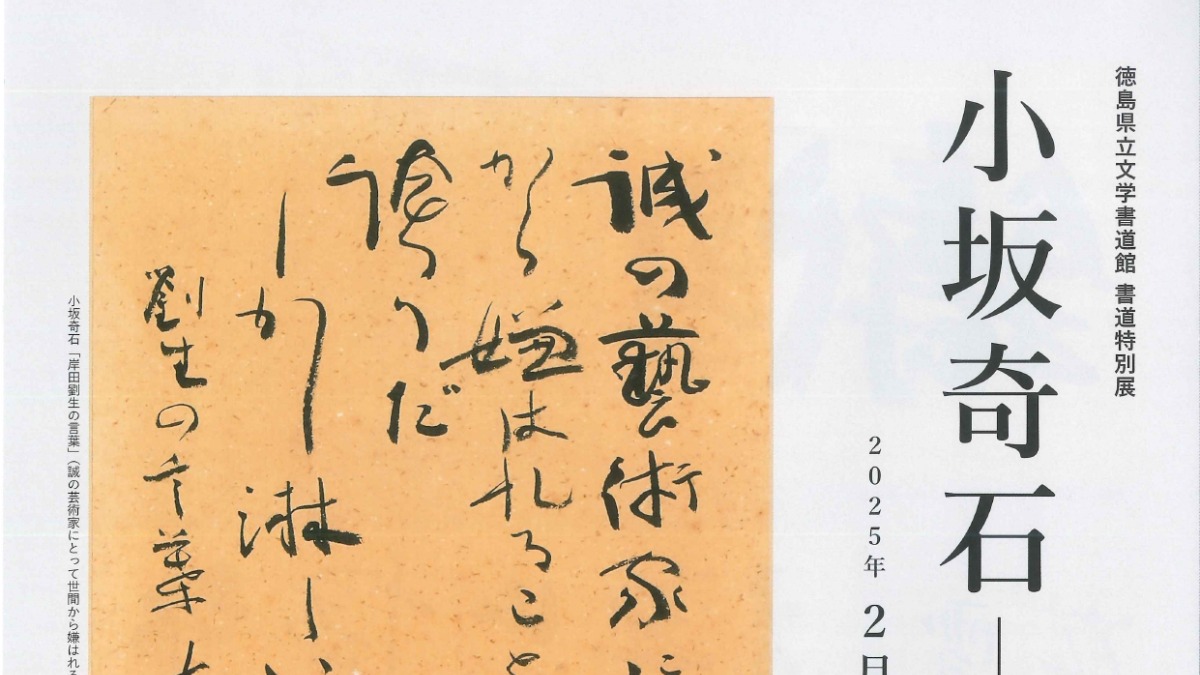 徳島県立文学書道館 書道特別展
小坂奇石―
2025年 2月
誠の藝術家に
から嫌はれること
誇りだ
しかし淋しい
劉生の言葉
小坂奇石「岸田劉生の言葉」（誠の芸術家にとって世間から嫌はれる